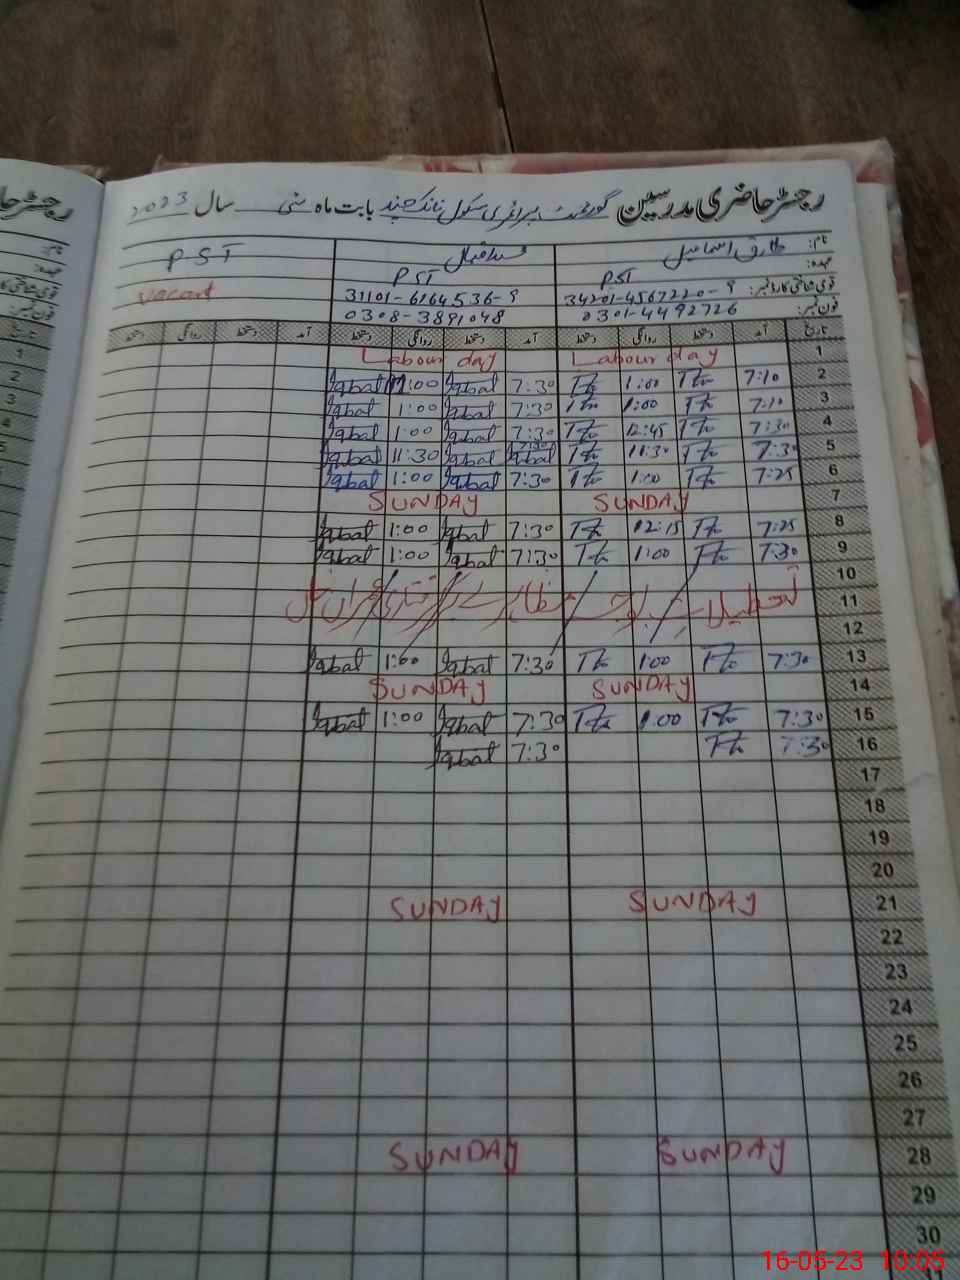 رجسٹر حاضری مدرسین گورنمنٹ پرائمری سکول نانک چند بابت ماہ مئی سال 2023
نام: طارق اسماعیل
عہدہ: PST PST PST
قومی شناختی کارڈ نمبر: 34201-4567220-9 31101-6164536-9 vacant
فون نمبر: 0301-4492726 0308-3891048
تاریخ آمد دستخط روانگی دستخط آمد دستخط روانگی دستخط آمد دستخط روانگی دستخط
1 Labour day Labour day
2 7:10 1:00 7:30 Iqbal 1:00 Iqbal
3 7:10 1:00 7:30 Iqbal 1:00 Iqbal
4 7:30 12:45 7:30 Iqbal 1:00 Iqbal
5 7:30 11:30 7:30 Iqbal Iqbal 11:30 Iqbal
6 7:25 1:00 7:30 Iqbal 1:00 Iqbal
7 SUNDAY SUNDAY
8 7:25 12:15 7:30 Iqbal 1:00 Iqbal
9 7:30 1:00 7:30 Iqbal 1:00 Iqbal
10
11
12
13 7:30 1:00 7:30 Iqbal 1:00 Iqbal
14 SUNDAY SUNDAY
15 7:30 1:00 7:30 Iqbal 1:00 Iqbal
16 7:30 7:30 Iqbal
17
18
19
20
21 SUNDAY SUNDAY
22
23
24
25
26
27
28 SUNDAY SUNDAY
29
30
16-05-23 10:05